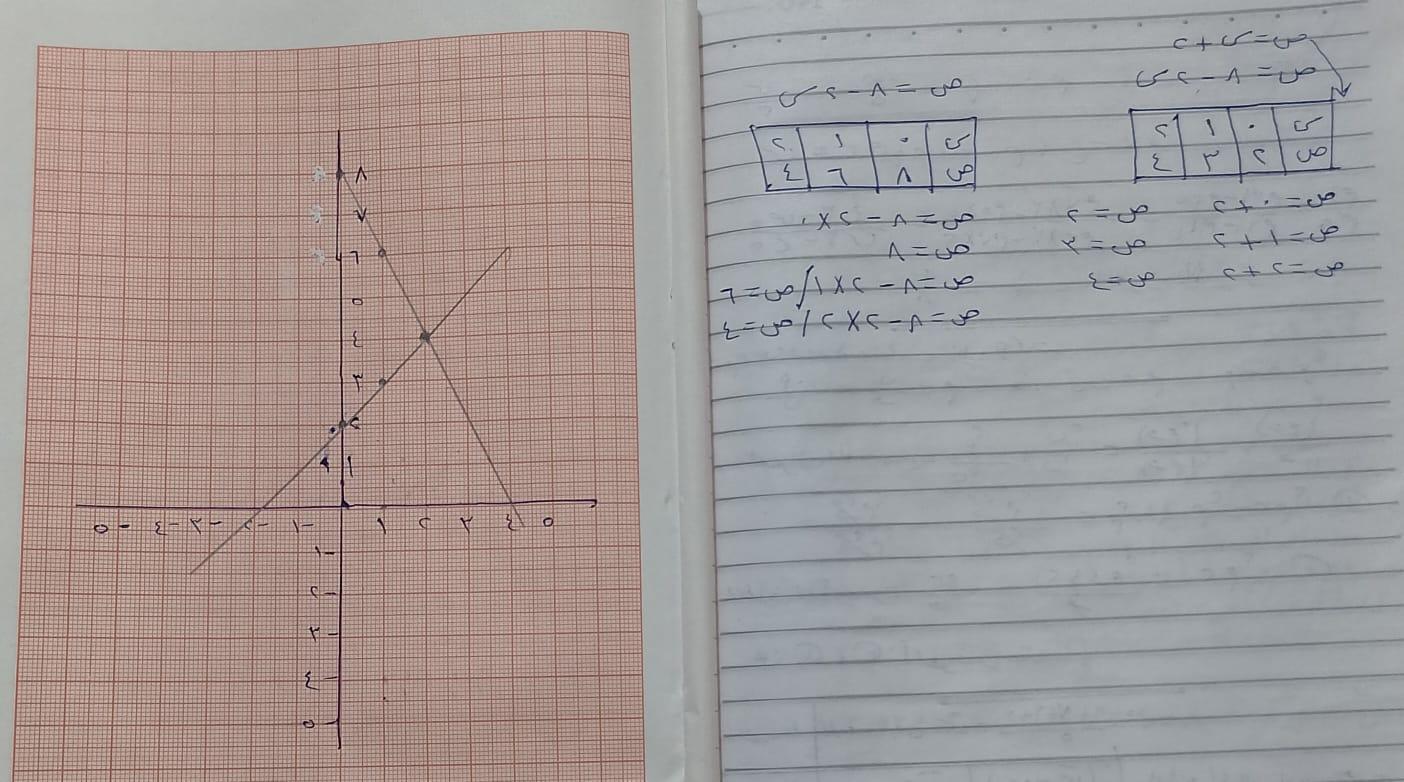 ص=س+٢
ص=٨-٢س
س ٠ ١ ٢
ص ٢ ٣ ٤
ص=٠+٢ ص=٢
ص=١+٢ ص=٣
ص=٢+٢ ص=٤
ص=٨-٢س
س ٠ ١ ٢
ص ٨ ٦ ٤
ص=٨-٢×٠
ص=٨
ص=٨-٢×١/ص=٦
ص=٨-٢×٢/ص=٤
٨
٧
٦
٥
٤
٣
٢
١
٥- ٤- ٣- ٢- ١- ١ ٢ ٣ ٤ ٥
١-
٢-
٣-
٤-
٥-